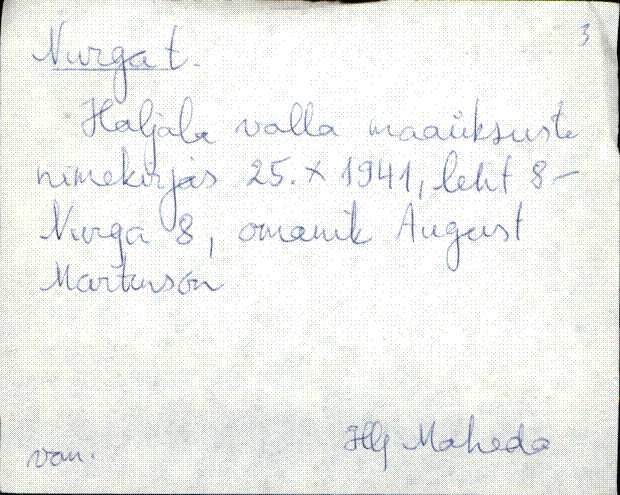 3
Nurga t.
Haljala valla maaüksuste
nimekirjas 25. X 1941, leht 8 –
Nurga 8, omanik August
Martinson
Hlj Maheda
van.